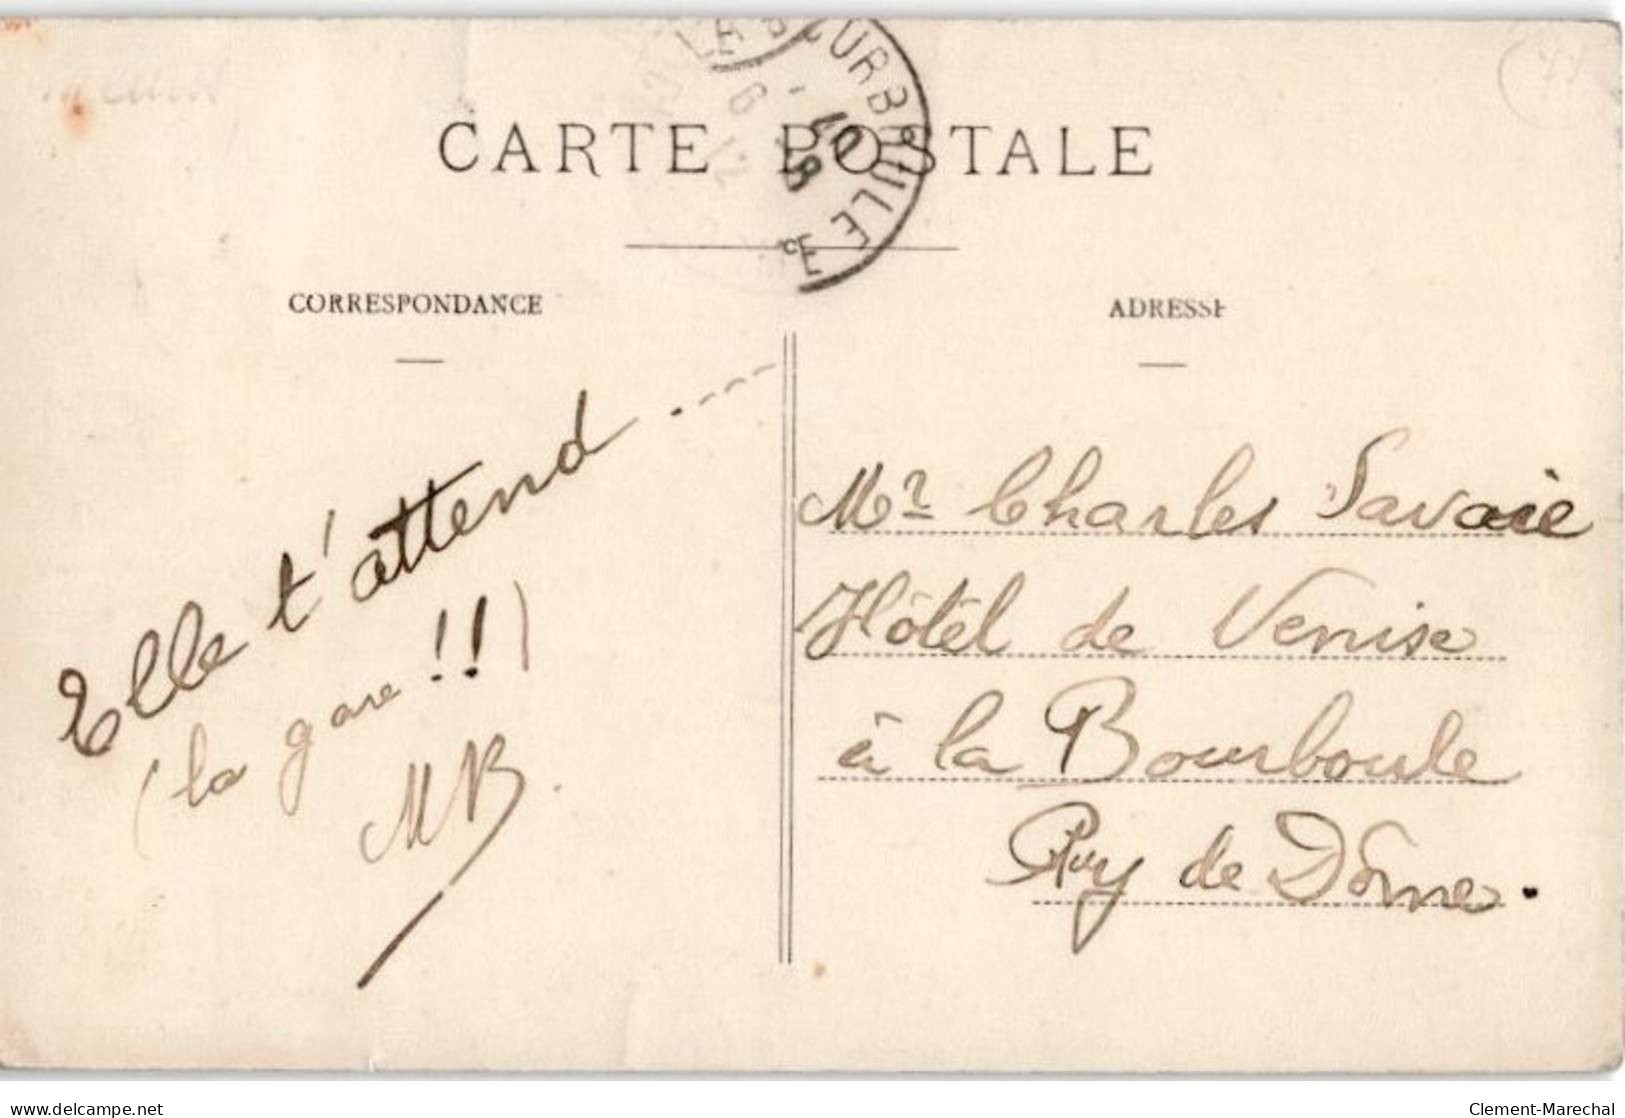 CARTE POSTALE
LA BOURBOULE
CORRESPONDANCE
ADRESSE
Elle t'attend . - - - -
(la gare !!)
MB.
Mr Charles Savoie
Hôtel de Venise
à la Bourboule
Puy de Dôme.
delcampe.net
Clement-Marechal